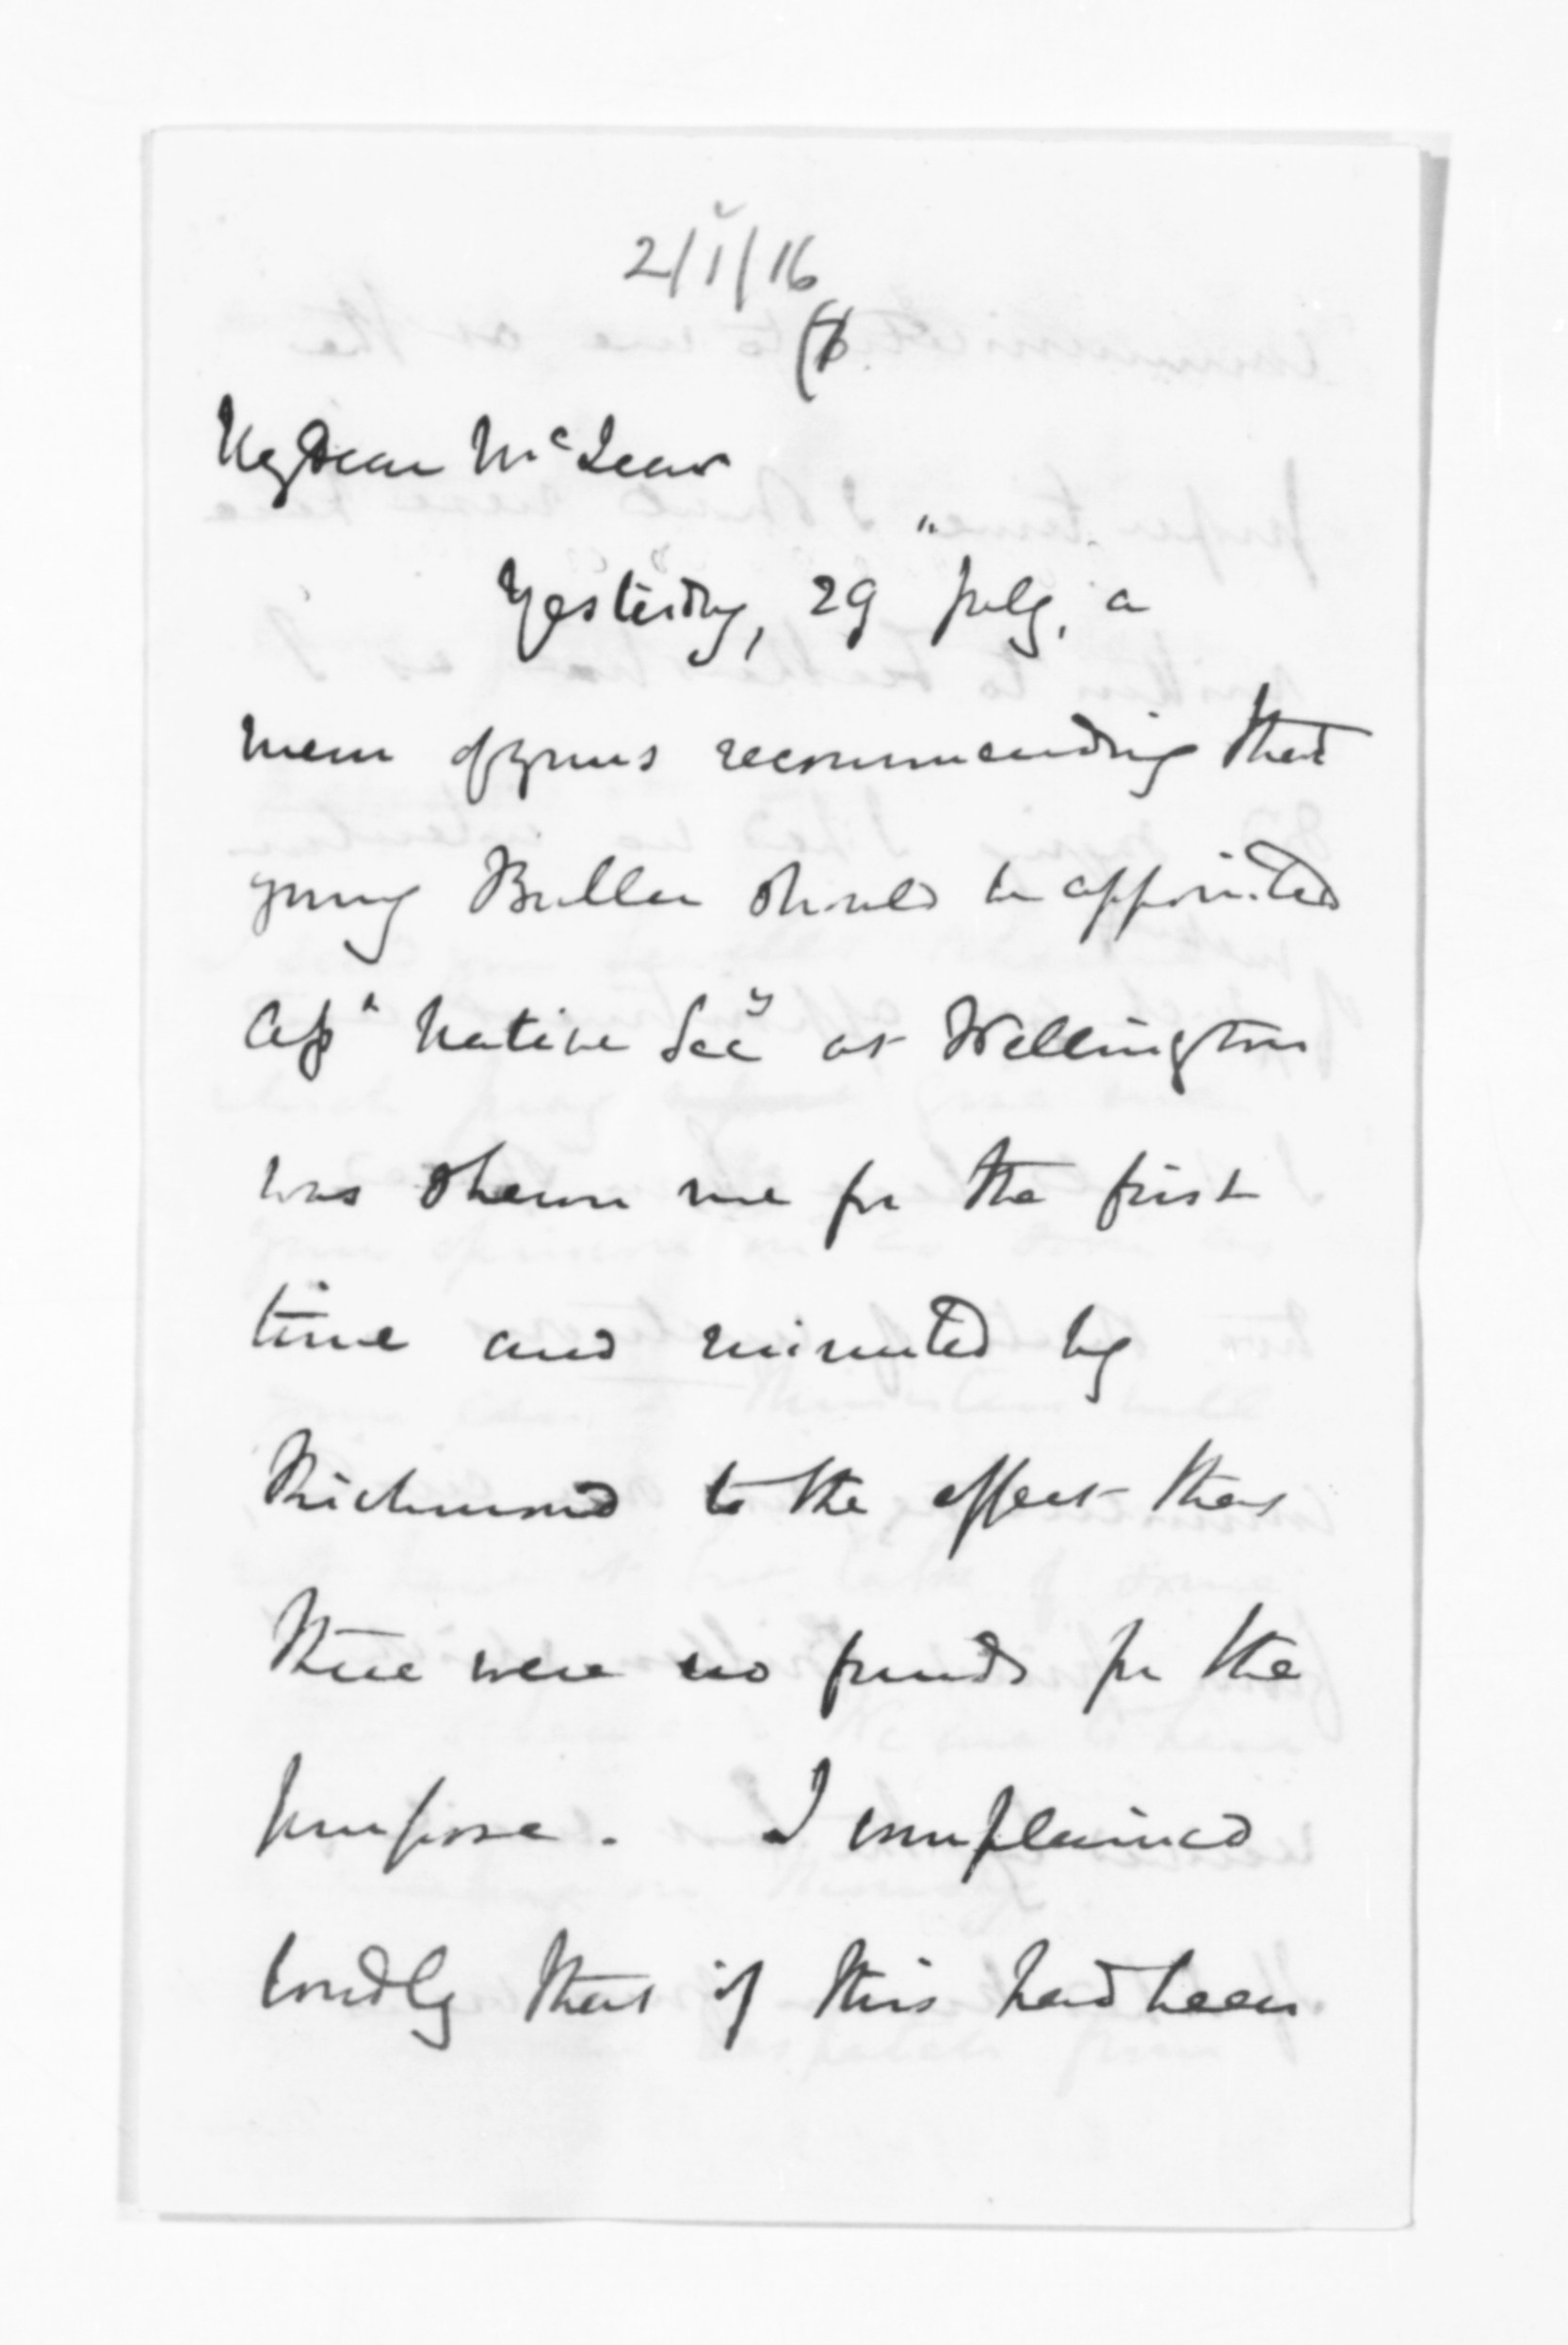 2/1/16
My Dear McLean
Yesterday, 29" July, a
mem of yours recommending that
young Buller should be appointed
Asst Native Secy at Wellington
was shewn me for the first
time and minuted by
Richmond to the effect that
there were no funds for the
purpose. I complained
loudly that if this had been